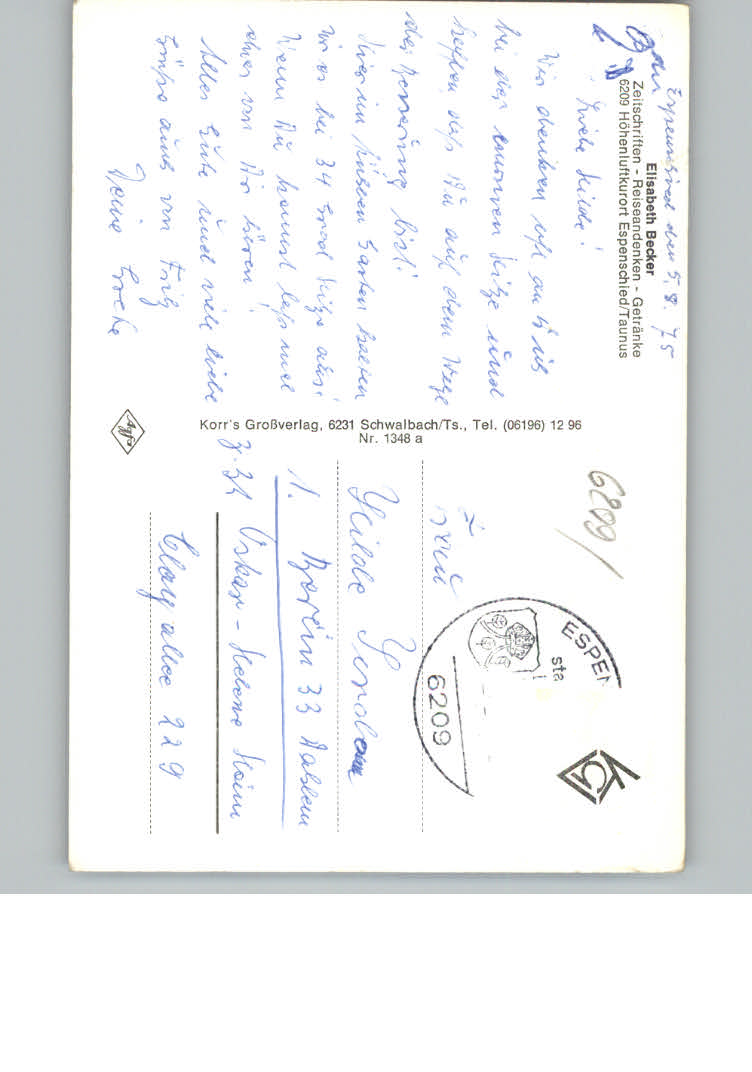 Elisabeth Becker
Zeitschriften - Reiseandenken - Getränke
6209 Höhenluftkurort Espenschied/Taunus
Espenschied den 5. 8. 75
Liebe Hilde!
Wir denken oft an Dich
bei der enormen Hitze und
hoffen, daß Du auf dem Wege
der Besserung bist!
Hier im kühlen Garten halten
wir es bei 34 Grad Hitze aus!
Wenn Du kannst laß mal
etwas von Dir hören!
Alles Gute und viele liebe
Grüße auch von Fritz
Deine
Korr's Großverlag, 6231 Schwalbach/Ts., Tel. (06196) 12 96
Nr. 1348 a
Agfa
6209/
Frau
Hilde
1. Berlin 33 Dahlem
z. Zt. Oskar-Helene Heim
Clayallee 229
ESPEN
sta
6209